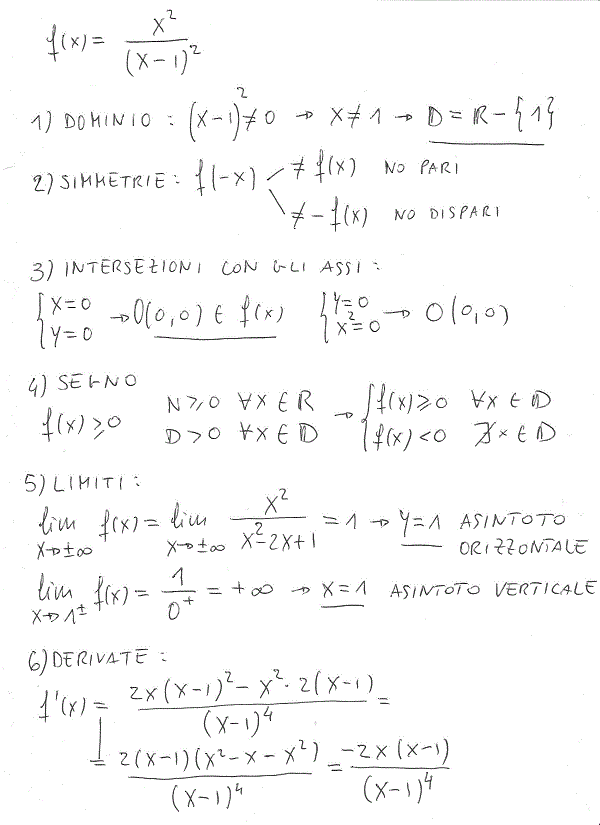 f(x) = x² / (x-1)²
1) DOMINIO : (x-1)² ≠ 0 → x ≠ 1 → D = R - {1}
2) SIMMETRIE : f(-x) ≠ f(x) NO PARI
≠ -f(x) NO DISPARI
3) INTERSEZIONI CON GLI ASSI :
{x=0 y=0 → O(0,0) ∈ f(x) {y=0 x²=0 → O(0,0)
4) SEGNO
f(x) ≥ 0 N ≥ 0 ∀x ∈ R D > 0 ∀x ∈ D → {f(x) ≥ 0 ∀x ∈ D f(x) < 0 ∄x ∈ D
5) LIMITI :
lim x→±∞ f(x) = lim x→±∞ x² / (x²-2x+1) = 1 → y=1 ASINTOTO
ORIZZONTALE
lim x→1± f(x) = 1/0⁺ = +∞ → x=1 ASINTOTO VERTICALE
6) DERIVATE :
f'(x) = (2x(x-1)² - x²·2(x-1)) / (x-1)⁴ =
= 2(x-1)(x²-x-x²) / (x-1)⁴ = -2x(x-1) / (x-1)⁴